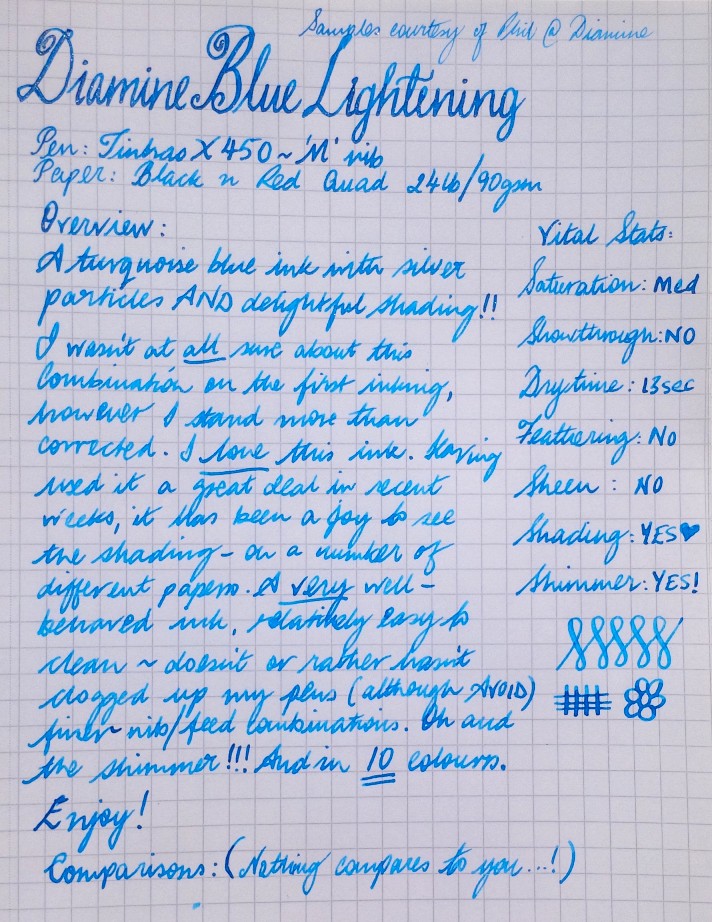 Samples courtesy of Phil @ Diamine
Diamine Blue Lightening
Pen: Jinhao X450 ~ 'M' nib
Paper: Black n Red Quad 24lb/90gsm
Overview:
A turquoise blue ink with silver
particles AND delightful shading!!
I wasn't at all sure about this
combination on the first inking,
however I stand more than
corrected. I love this ink. Having
used it a great deal in recent
weeks, it has been a joy to see
the shading - on a number of
different papers. A very well-
behaved ink, relatively easy to
clean ~ doesn't or rather hasn't
clogged up my pens (although AVOID)
finer nib/feed combinations. Oh and
the shimmer!!! And in 10 colours.
Enjoy!
Comparisons: (Nothing compares to you...!)
Vital Stats:
Saturation: Med
Showthrough: NO
Drytime: 13sec
Feathering: No
Sheen: NO
Shading: YES♥
Shimmer: YES!